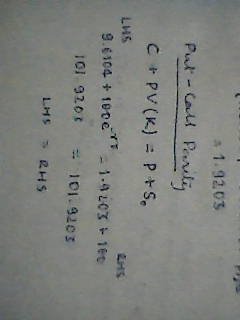 = 1.9203
Put - Call Parity
C + PV(K) = P + S₀
LHS RHS
9.6104 + 100e^-rT = 1.9203 + 100
101.9203 = 101.9203
LHS = RHS